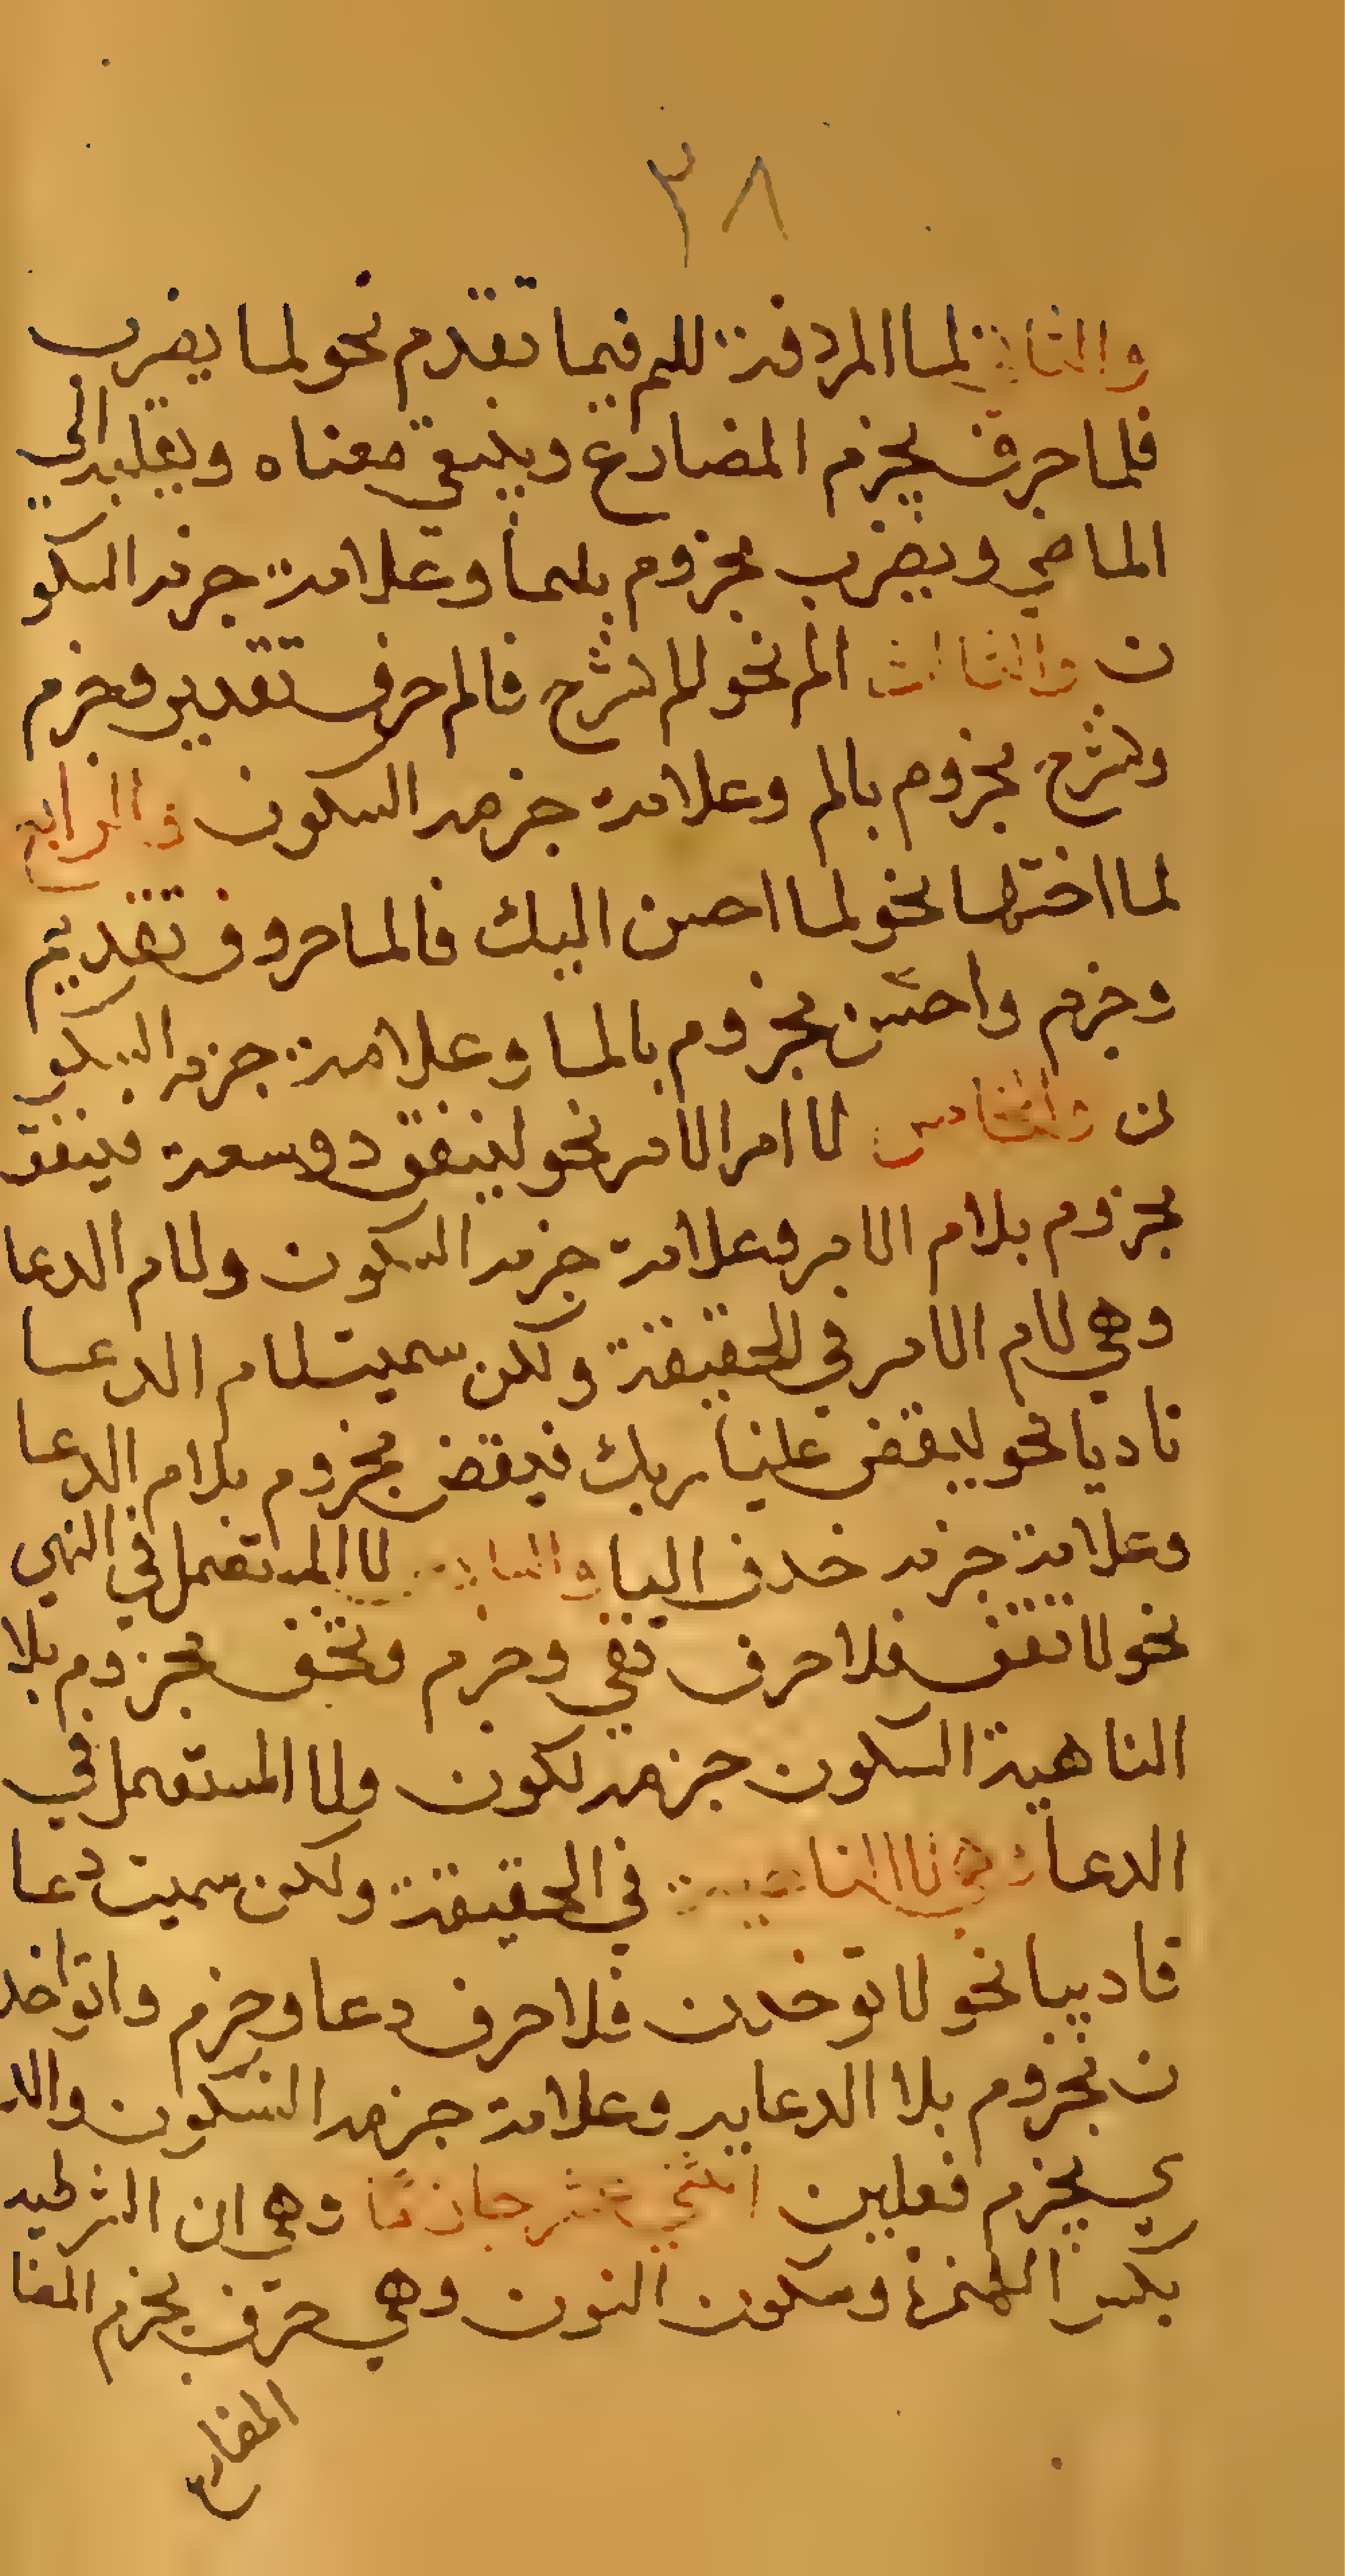 ٣٨
والثاني لما المردفة للم فيما تقدم نحو لما يضرب
فلما حرف يجزم المضارع وينفي معناه ويقلبه الى
الماضي ويضرب مجزوم بلما وعلامة جزمه السكو
ن والثالث الم نحو الم نشرح فالم حرف تقدير وجزم
ونشرح مجزوم بالم وعلامة جزمه السكون والرابع
لما اختها نحو لما احسن اليك فالما حروف تقديم
وجزم واحسن مجزوم بالما وعلامة جزمه السكو
ن والخامس لا امر الامر نحو لينفق دو سعة فينفق
مجزوم بلام الامر وعلامة جزمه السكون ولام الدعا
وهي لام الامر في الحقيقة ولكن سميت لام الدعا
تاديا نحو ليقض علينا ربك فيقض مجزوم بلام الدعا
وعلامة جزمه حذف اليا والسادس لا المستعمل في النهي
نحو لا تخف فلا حرف نفي وجزم وتخف مجزوم بلا
الناهية السكون جزمه لكون ولا المستعمل في
الدعا وهي لا الناهية في الحقيقة ولكن سميت دعا
تاديبا نحو لا توخدن فلا حرف دعا وجزم واتواخد
ن مجزوم بلا الدعايه وعلامة جزمه السكون والد
ي يجزم فعلين اثني عشر جازما وهي ان الشرطيه
بكسر الهمزة وسكون النون وهي حرف يجزم المضا
المضارع